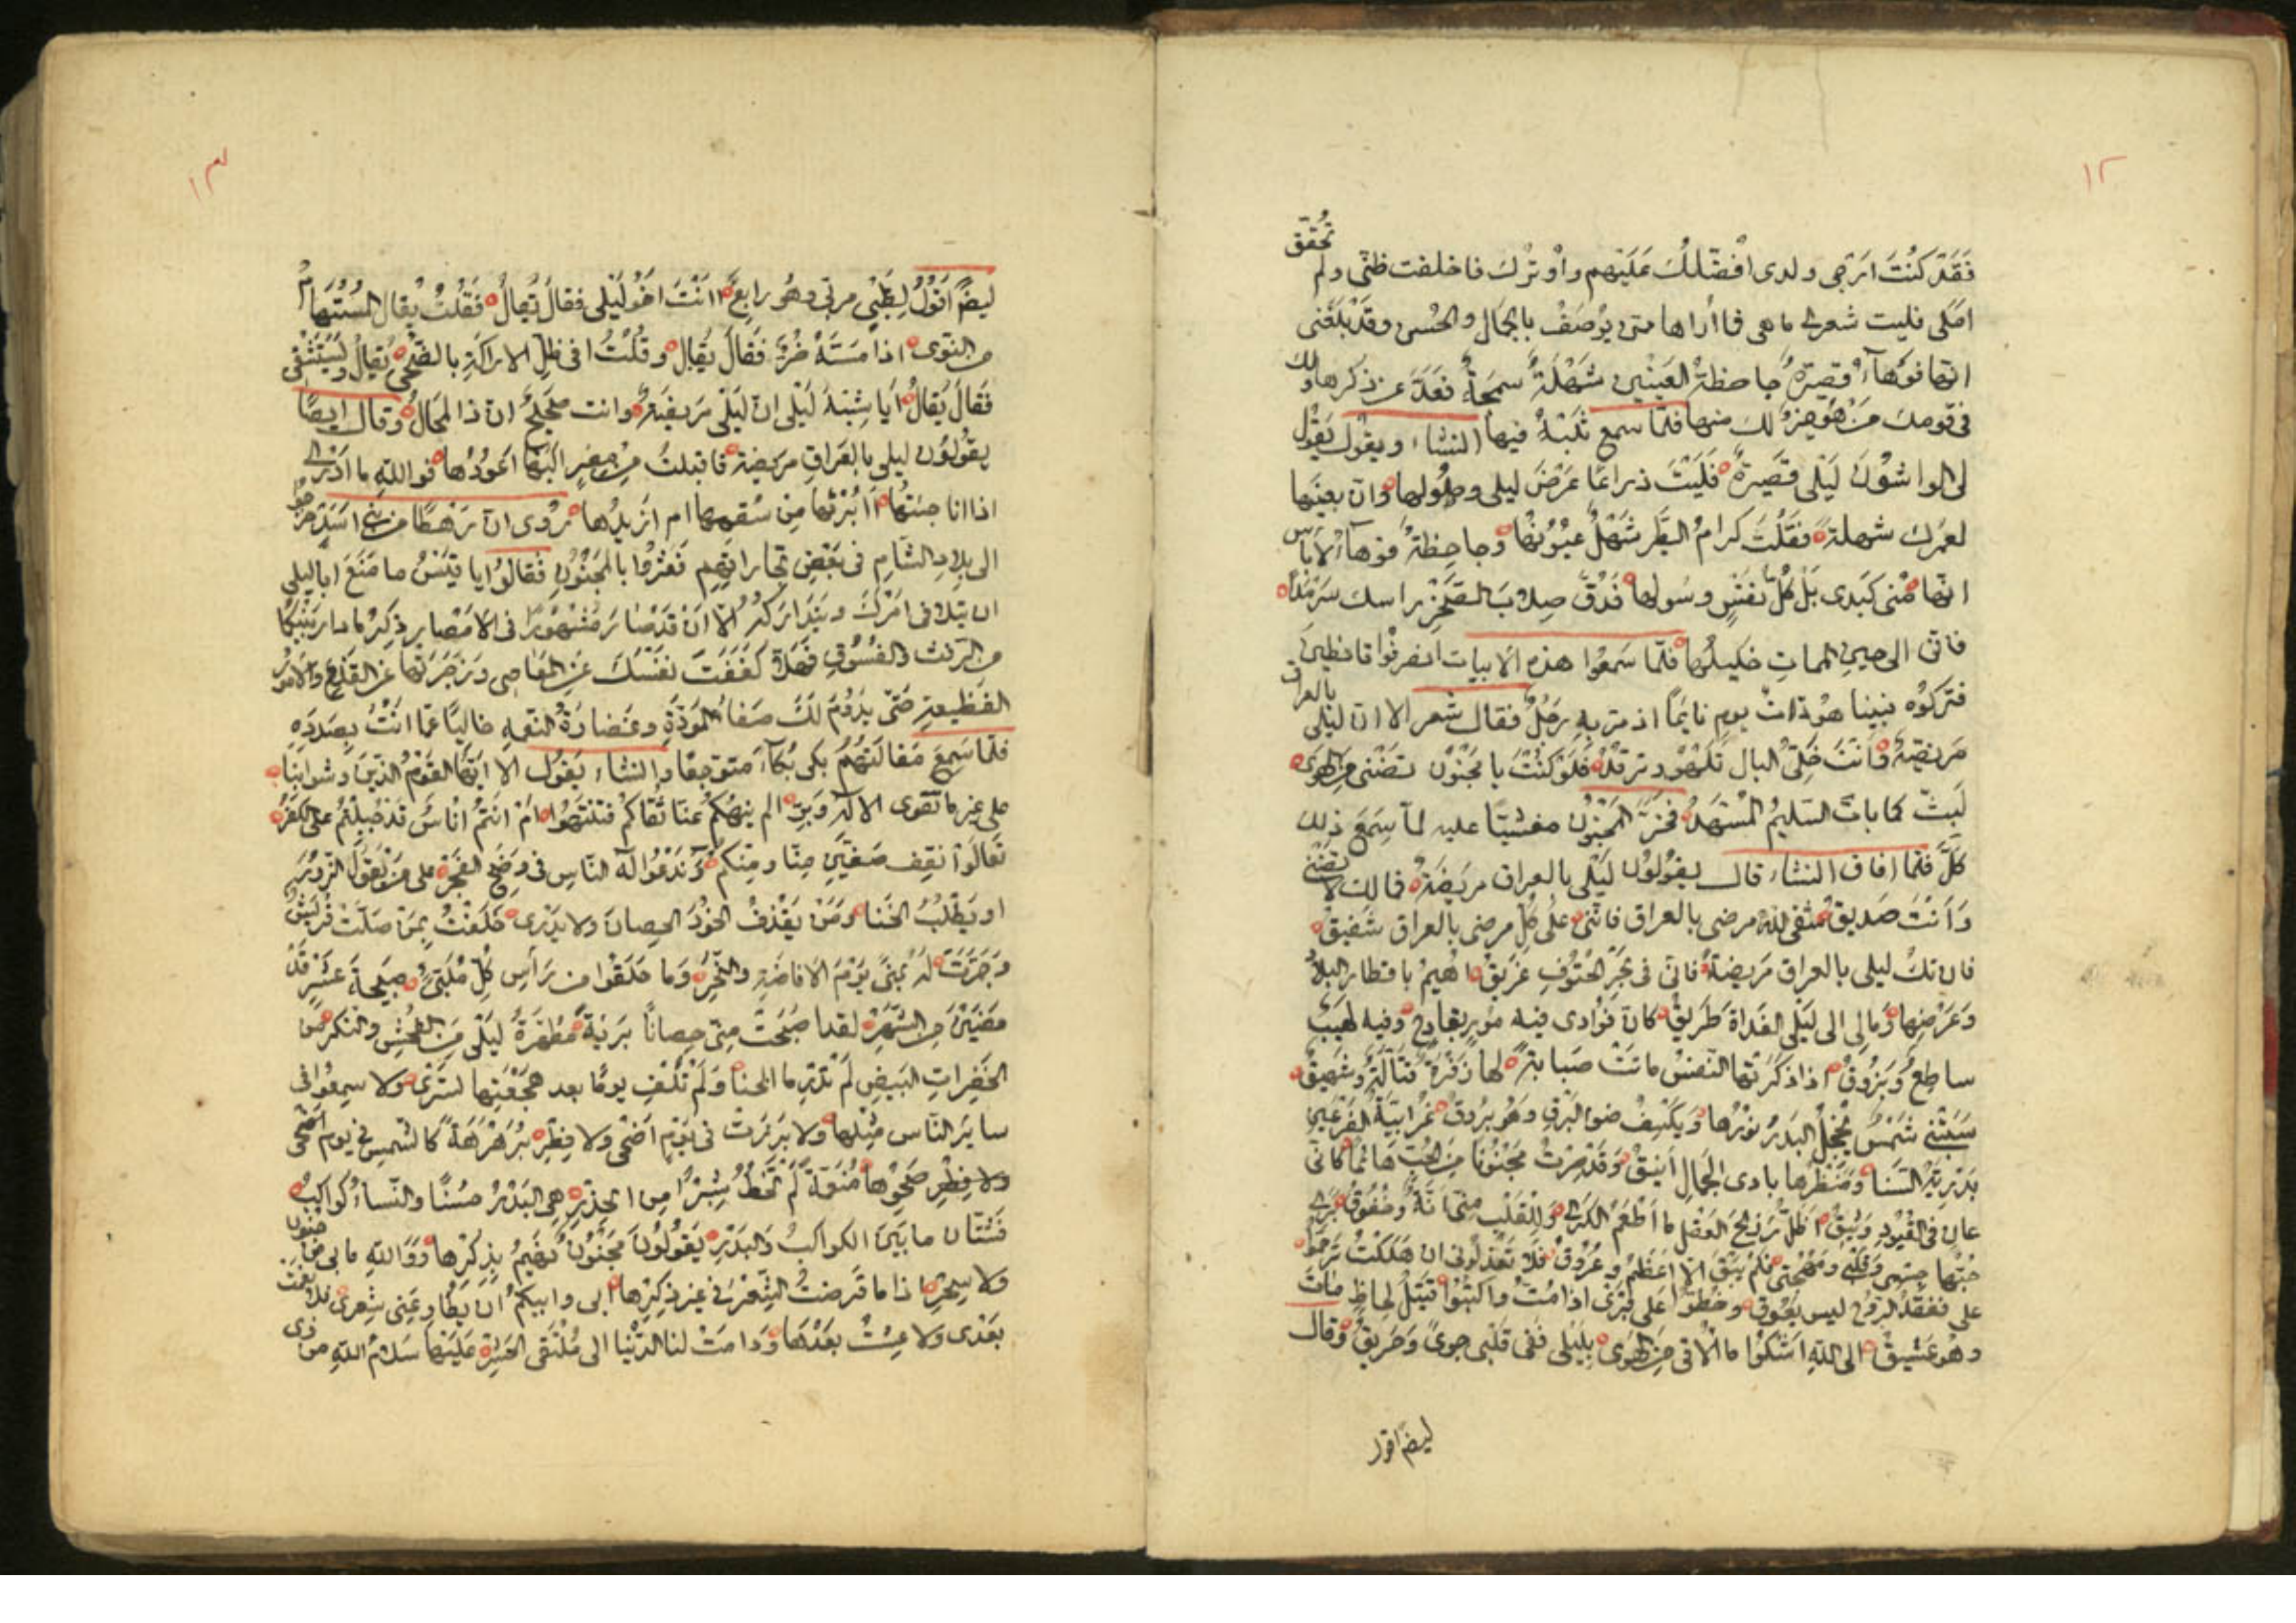 ١٢
فَقَدْ كنْتَ ارتجى ولدى افْضّلكَ عَلَيْهم واوْثرك فاخلفت ظنّى ولم تُحَقق
املى فليت شعرى ما هى فاأراها متى يُوصَفْ بالجمال والحُسْن وقَدْ بَلَغَنى
انها فوهآءُ قصيرَةٌ جاحظةُ العَيْنَين شهْلَةٌ سمجةٌ فَعَدّ عن ذكرها ولك
فى قومك مَنْ هُوَ خيرٌ لك منها فلمّا سمع ثَلْبَهُ فيها انشاء ويقول يَقُولُ
لى الواشُونَ لَيْلَى قصَيرةٌ فَلَيْتَ ذراعًا عَرْضَ ليلى وطُولها وان بعينَها
لعَمْرك شهلة فقُلْتُ كرامُ الطَّير شَهْلٌ عيُوُنها وجاحِظةٌ فوهآءُ لا بأس
انّها مُنى كَبَدى بَلْ كُلُّ نفَسٍ وسُولها فَدُقّ صِلابَ الصَّخْرِ راسك سَرْمَدًا
فانى الى حين الممات خليلُها فلمّا سَمعُوا هذه الابيات انصرفُوا قانطين
فتركوُه فبينا هو ذات يوم نايمًا اذ مرّ به رَجُلٌ فقال شعر الا انّ ليلى بالعراق
مَريضَةٌ وَانْتَ خَلِىُّ البال تَلْهُو وترقُدُ فَلَوْ كُنْتَ يا مجنُونُ تضنى من الهوى
لَبِتَّ كما باتَ السّليمُ المُسَهَّدُ فَخَرّ المجنُون مغشيًا عليه لمآ سَمِعَ ذلك
كلَّهُ فلمّا افاق انشاء قال يقُولُون لَيْلَى بالعراق مريضَةٌ فمالك لا تضنى
وَأَنْتَ صَديق شفى اللهُ مرضى بالعراق فانّنى على كلّ مرضى بالعراق شفيقُ
فان تكُ ليلى بالعراق مَريضةً فانى فى بَحْرِ الحُتُوفِ غَريقُ اهيمُ باقطار البلاد
وَعَرْضِها وَمالى الى لَيْلَى الغَدَاة طَرِيقُ كانّ فؤادى فيه مُورٍ بقادحٍ وفيه لَهيبٌ
ساطِعٌ وَبُرُوقُ اذا ذكرَتْها النّفسُ ماتت صَبابَةً لها زَفْرَةٌ قتّالَةٌ وشَهيقُ
سَبَتْنى شَمْسٌ يُخجِلُ البَدْرَ نُورُها ويَكْسِفُ ضوءَ البَرْقِ وَهْوَ بَرُوقُ غُرَابيّةُ الفَرْعَينِ
بَدْريّةُ السّنَا وَمَنْظَرُها بادى الجَمال اَنيقُ وقَدْ صِرْتُ مجنُونًا مِنَ الحُبِّ هائمًا كانى
عان فى القُيُودِ وَثيقُ اظلُّ رَزيحَ العَقل ما اُطعَمُ الكَرى وَللقَلْبِ منّى اَنّةٌ وخُفُوقُ بَرى
حُبُّها جِسْمى وَقَلْبى وَمُهْجَتى فَلَمْ يَبْقَ الاّ اعْظُمٌ وعُرُوقُ فلا تَعْذلُونى ان هَلَكْتُ تَرَحّمُوا
علىّ ففَقْدُ الرّوح ليس يَعُوقُ وخطّوا على قَبْرى اذا مُتُّ واكتُبُوا قَتيلُ لِحَاظٍ ماتَ
وهُو عَشيقُ الى اللهِ اشكُوا ما اُلاقى مِنَ الهَوَى بِلَيْلى فَفى قلْبى جوىً وَحَريقُ وَقال
ايضًا اقول
١٣
ايضًا اَقُولُ لِظَبْىٍ مرّ بى وهُو راتِعٌ اَانْتَ اخُو لَيْلى فقالَ يُقالُ فَقُلْتُ يُقال المُسْتَهامُ
من النّوى اذا مَسّهُ ضُرٌّ فَقالَ يُقالُ وقُلْتُ افى ظِلّ الاراكَةِ بالضّحى يُقالُ ويُسْتَشْفى
فَقالَ يُقالُ أيا شِبْهَ لَيْلى انّ لَيْلَى مَريضَةٌ وانت صَحيحٌ انّ ذا لمحَالُ وَقال ايضًا
يقُولُون ليلى بالعَراقِ مريضة فاقبلتُ مِنْ مصْرٍ الَيْها اعُودُها فواللهِ ما ادْرى
اذا انا جئتُها اَاُبْرئها من سُقمِها ام ازيدُها رُوِى انّ رَهطًا من بنى اسَد خرَجُوا
الى بلادِ الشّام فى بَعْضِ تجاراتِهم فَعَثَروُا بالمَجْنُون فقالوُا يا قَيْسُ ما صَنَعَ اباليلى
ان تتلافى امْركَ وتتَدَاركهُ الآ انْ قدْ صَارَ مَشْهُورًا فى الامْصَارِ ذِكرُ ما
من الرّفث والفُسُوق فهَلاّ كفَفْتَ نفسَكَ عَنِ المعَاصى وزجَرْتَها عن القذع والامُورِ
الفظيعة حَتّى يَدُومَ لكَ صَفاءُ المَودّةِ وغضَارَةُ النّعمِ خاليًا عمّا انْتَ بصَدَدِهِ
فلمّا سَمعَ مَقالَتهُم بكى بُكآءً متوَجّعًا وانشاء يقُول الا ايّها القَوْمُ الذين وشوا بنا
على غير ما تقوى الالهِ وَبِرّ الم ينهَكُمْ عنّا تُقاكُمْ فتَنْتَهُوا امْ انتُم اناسٌ قد جُبِلتُم على الكفر
تعَالَوْا نَقِف صَفّين منّا ومنكم وَنَدْعُوا الهَ النّاسِ فى وضَحِ الفَجْرِ على مَنْ يَقُولُ الزّورَ
او يَطلُبُ الخَنا وَمَنْ يَقْذِفُ الخَوْدَ الحصانَ ولا يَدْرى حَلَفْتُ بِمَنْ صَلّتْ قُرَيْشٌ
وَجَمّرَتْ لهُ بمنىً يَوْمَ الافاضَةِ والنّحْرِ وَما حَلقُوا من رَأسِ كُلّ مُلَبّىٍ صَبيحةَ عَشْرٍ قَدْ
مضَيْنَ من الشّهْرِ لقد اَصْبَحَتْ منّى حصانًا بَريّةً مُطهّرَةً لَيْلى مِنَ الفُحْشِ والنكرِ من
الخَفِراتِ البَيضِ لَمْ تَدْرِ ما الخنا وَلَمْ تُلْفَ يومًا بعد هَجْعَتها تَسْرى ولا سمعُوا فى
سائرِ النّاس مِثْلها ولا بَرَزَتْ فى يَوْمِ اضحى ولا فِطْرِ بَرَهْرَهَةٌ كالشّمسِ فى يوم اضحى
ولا فِطر مُنَعّمَةٌ لَمْ تَخْطُ شِبْرًا مِن الخِدْرِ هى البَدْرُ حُسْنًا والنّساءُ كواكبٌ
فَشَتّان ما بَيْنَ الكواكبِ وَالبَدْرِ يَقُولُونَ مَجْنُونٌ يَهيمُ بذِكرْها وَوَاللهِ ما بى مِنْ جنون
ولا سِحْرِ اذا ما قَرَضتُ الشّعْرَ فى غير ذِكرِها ابى وابيكم ان يُطاوِعَنى شِعرى فلا نعِمَتْ
بعْدى ولا عِشْتُ بعْدَهَا وَدَامَتْ لنا الدّنْيا الى مُلْتَقى الحَشْرِ عَلَيْها سَلامُ اللهِ من ذى